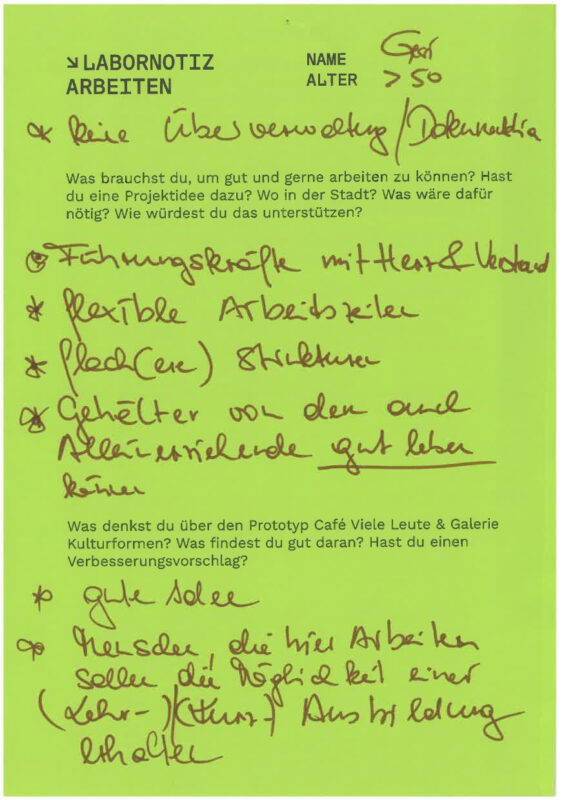 ↘LABORNOTIZ
ARBEITEN
NAME
ALTER > 50
* keine Überverwaltung/Dokumentation
Was brauchst du, um gut und gerne arbeiten zu können? Hast
du eine Projektidee dazu? Wo in der Stadt? Was wäre dafür
nötig? Wie würdest du das unterstützen?
* Führungskräfte mit Herz & Verstand
* flexible Arbeitszeiten
* flach(ere) Strukturen
* Gehälter von den auch
Alleinerziehende gut leben
können
Was denkst du über den Prototyp Café Viele Leute & Galerie
Kulturformen? Was findest du gut daran? Hast du einen
Verbesserungsvorschlag?
* gute Idee
* Menschen, die hier Arbeiten
sollen die Möglichkeit einer
(Lehr-)(Kurz-) Ausbildung
erhalten